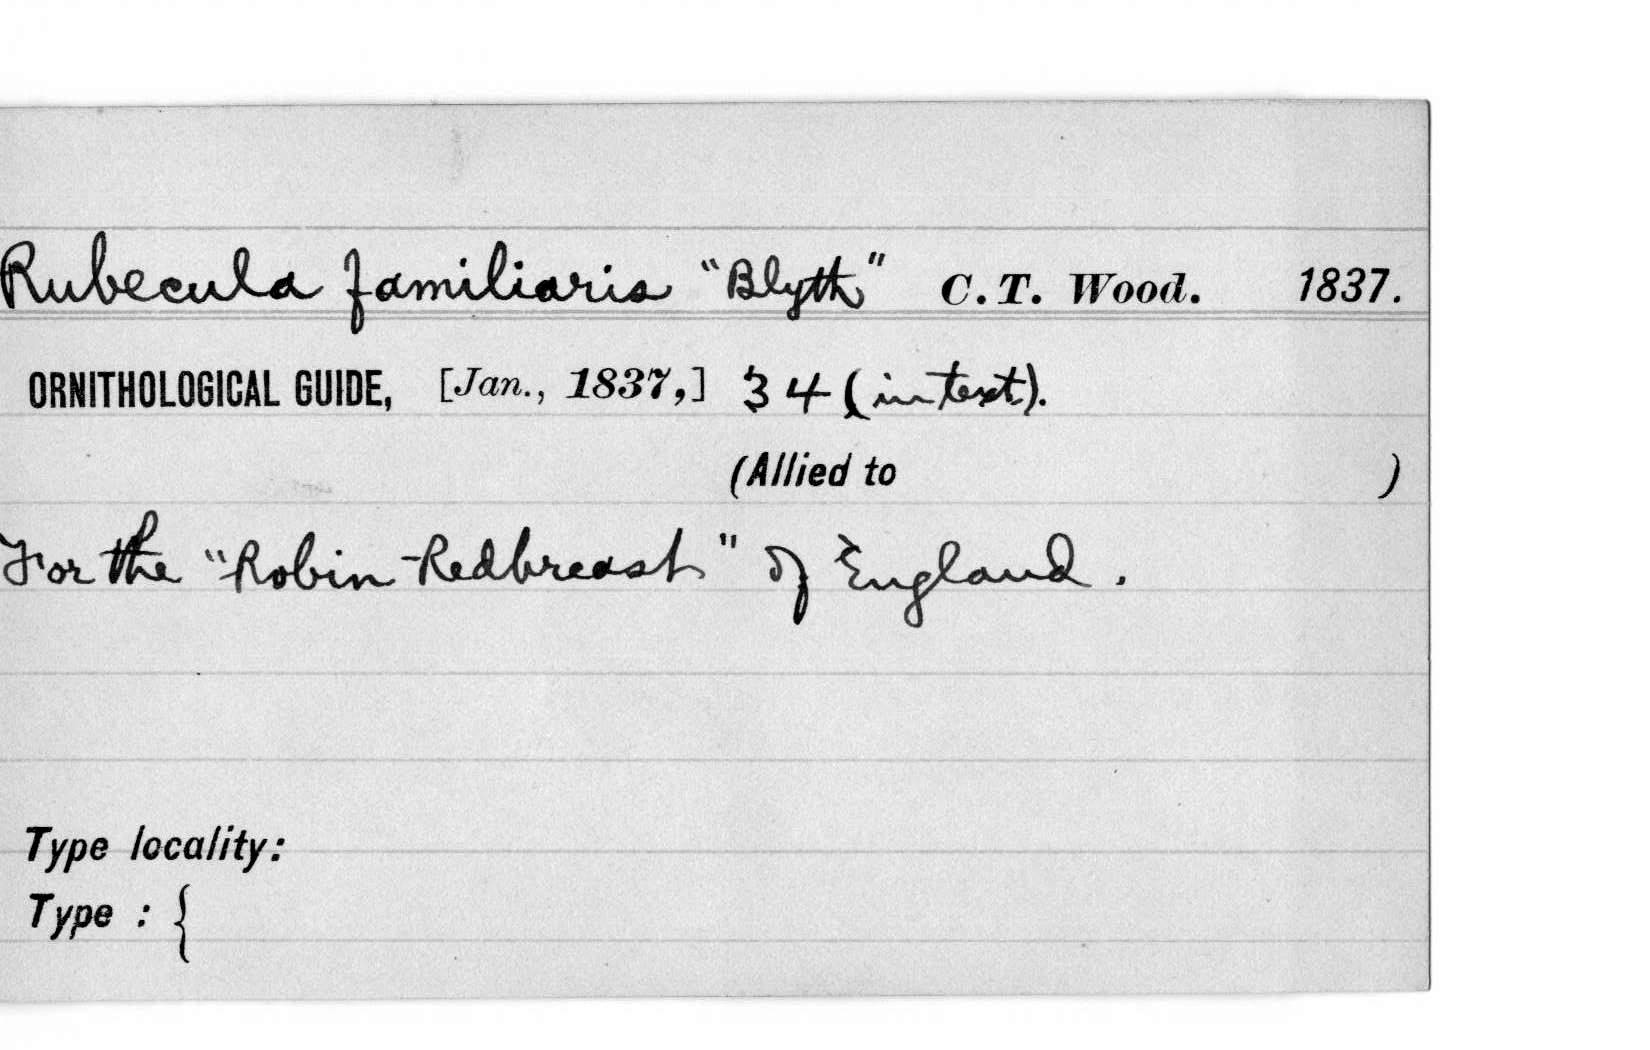 Rubecula familiaris "Blyth" C. T. Wood. 1837.
ORNITHOLOGICAL GUIDE, [Jan., 1837,] 34 (in text).
(Allied to )
For the "Robin-Redbreast" of England.
Type locality:
Type : {